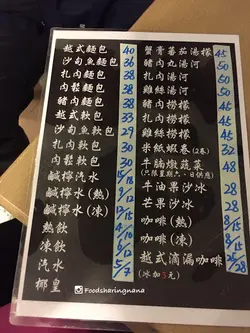 越式麵包 40
沙甸魚麵包 36
扎肉麵包 38
內鬆麵包 38
豬內麵包 38
越式軟包 33
沙甸魚軟包 29
扎肉軟包 30
內鬆軟包 30
鹹檸汽水 15/18
鹹檸水 (熱) 9/12
鹹檸水 (凍)
熱飲
凍飲
汽水 5/7
椰皇
蟹膏蕃茄湯檬 45
豬肉丸湯河 50
扎肉湯河 50
雞絲湯河 50
豬肉撈檬 45
扎肉撈檬 45
雞絲撈檬 45
米紙蝦卷 (2卷) 32
牛腩燉蔬菜 48/51
(只限星期六、日供應)
牛油果沙冰 28
芒果沙冰 28
咖啡 (熱) 8/15
咖啡 (凍)
越式滴漏咖啡 26/28
(冰加3元)
Foodsharingnana